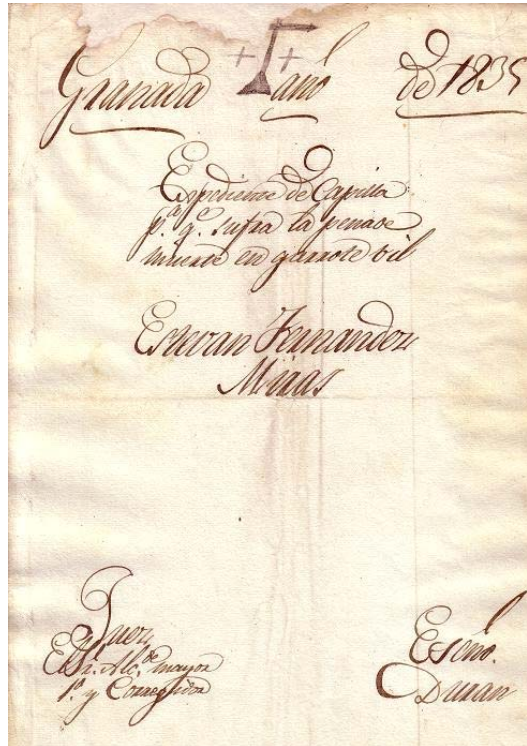 Granada año de 1835
Expediente de Capilla
p.ª q.º sufra la pena de
muerte en garrote vil
Estevan Fernandez
Mijas
Juez
El Sr. Alc.de mayor
1º. y Corregidor
Escno.
Duran